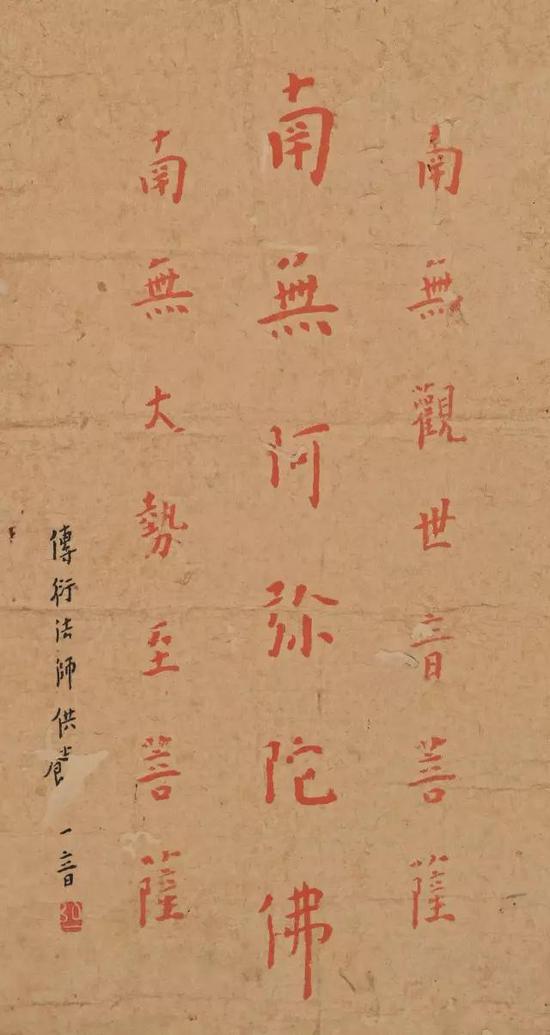 南無觀世音菩薩
南無阿弥陀佛
南無大勢至菩薩
傳衍法師供養 一音